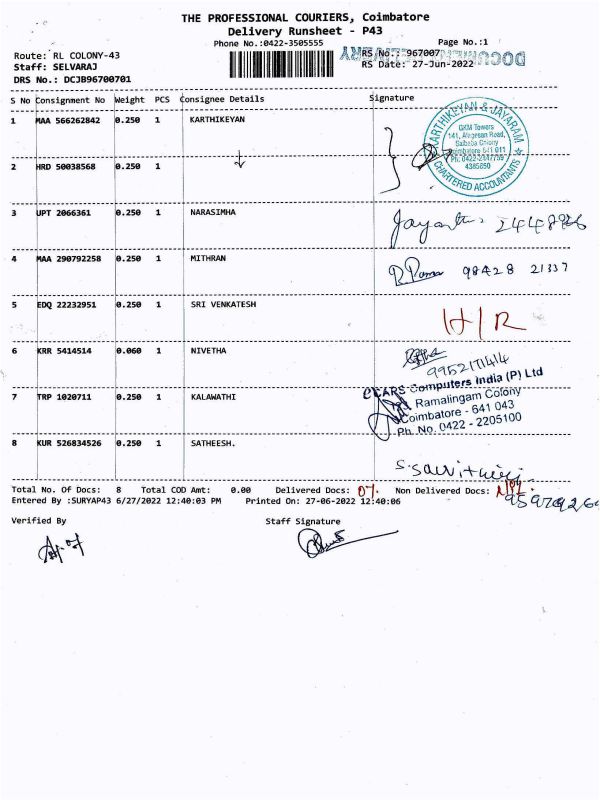 THE PROFESSIONAL COURIERS, Coimbatore
Delivery Runsheet - P43
Phone No.:0422-3505555 Page No.:1
Route: RL COLONY-43 RS No.: 967007
Staff: SELVARAJ RS Date: 27-Jun-2022
DRS No.: DCJB96700701
S No Consignment No Weight PCS Consignee Details Signature
1 MAA 566262842 0.250 1 KARTHIKEYAN
KARTHIKEYAN & JAYARAM
CHARTERED ACCOUNTANTS
GKM Towers
141, Alagesan Road,
Saibaba Colony
Coimbatore 641 011
Ph: 0422-2447759
4385650
2 HRD 50038568 0.250 1
3 UPT 2066361 0.250 1 NARASIMHA
4 MAA 290792258 0.250 1 MITHRAN 98428 21337
5 EDQ 22232951 0.250 1 SRI VENKATESH H/R
6 KRR 5414514 0.060 1 NIVETHA
CARS Computers India (P) Ltd
7 TRP 1020711 0.250 1 KALAWATHI
Ramalingam Colony
Coimbatore - 641 043
Ph. No. 0422 - 2205100
8 KUR 526834526 0.250 1 SATHEESH.
Total No. Of Docs: 8 Total COD Amt: 0.00 Delivered Docs: 07. Non Delivered Docs:
Entered By :SURYAP43 6/27/2022 12:40:03 PM Printed On: 27-06-2022 12:40:06
Verified By Staff Signature